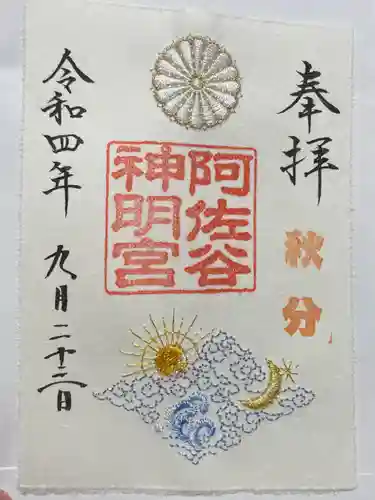 奉拝
秋分
阿佐谷
神明宮
令和四年
九月二十三日